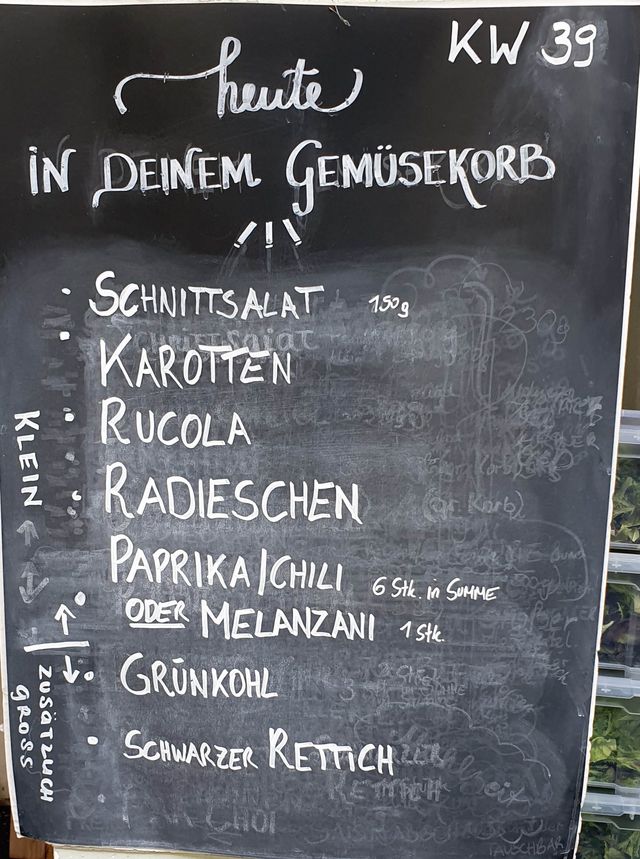 KW 39
heute
IN DEINEM GEMÜSEKORB
SCHNITTSALAT 150g
KAROTTEN
RUCOLA
RADIESCHEN
(gr. Korb)
PAPRIKA/CHILI 6 Stk. in SUMME
ODER MELANZANI 1 Stk.
GRÜNKOHL
SCHWARZER RETTICH
RETTICH
PAK CHOI
TAUSCHBAR
KLEIN
ZUSÄTZLICH
GROSS